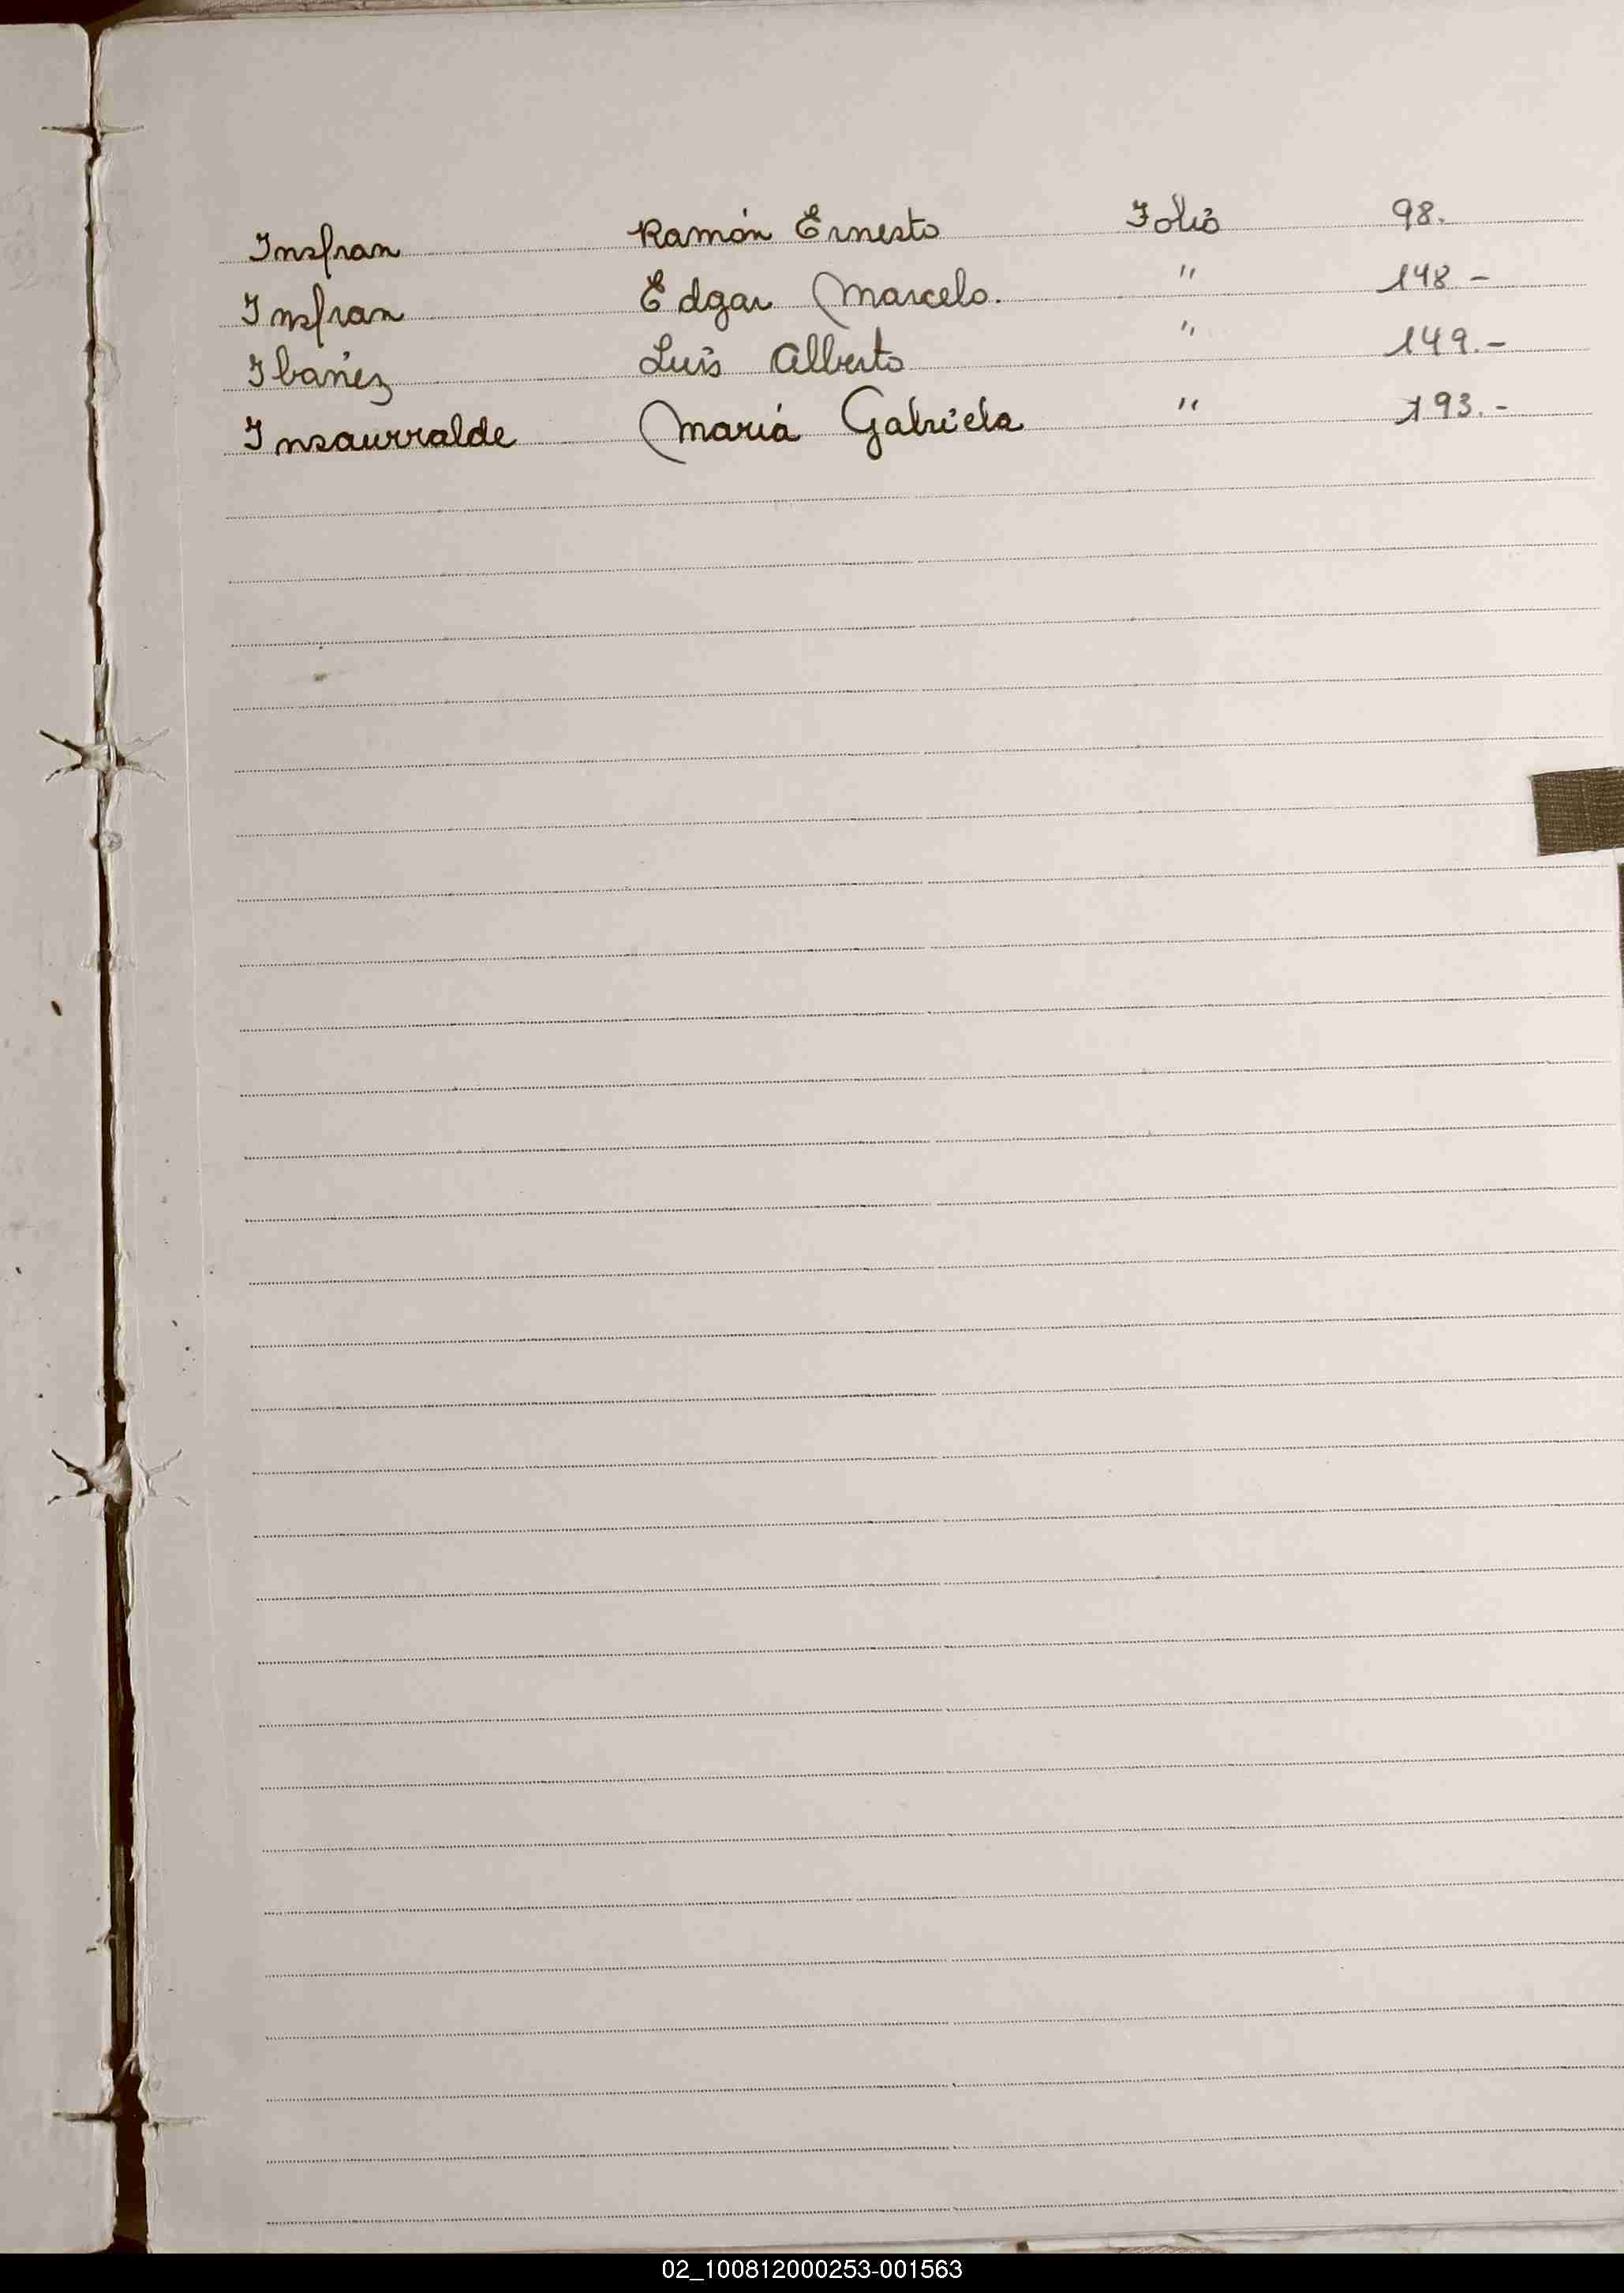 Insfran Ramón Ernesto Folio 98.
Insfran Edgar Marcelo. " 148.-
Ibañez Luis Alberto " 149.-
Insaurralde María Gabriela " 193.-
02_100812000253-001563